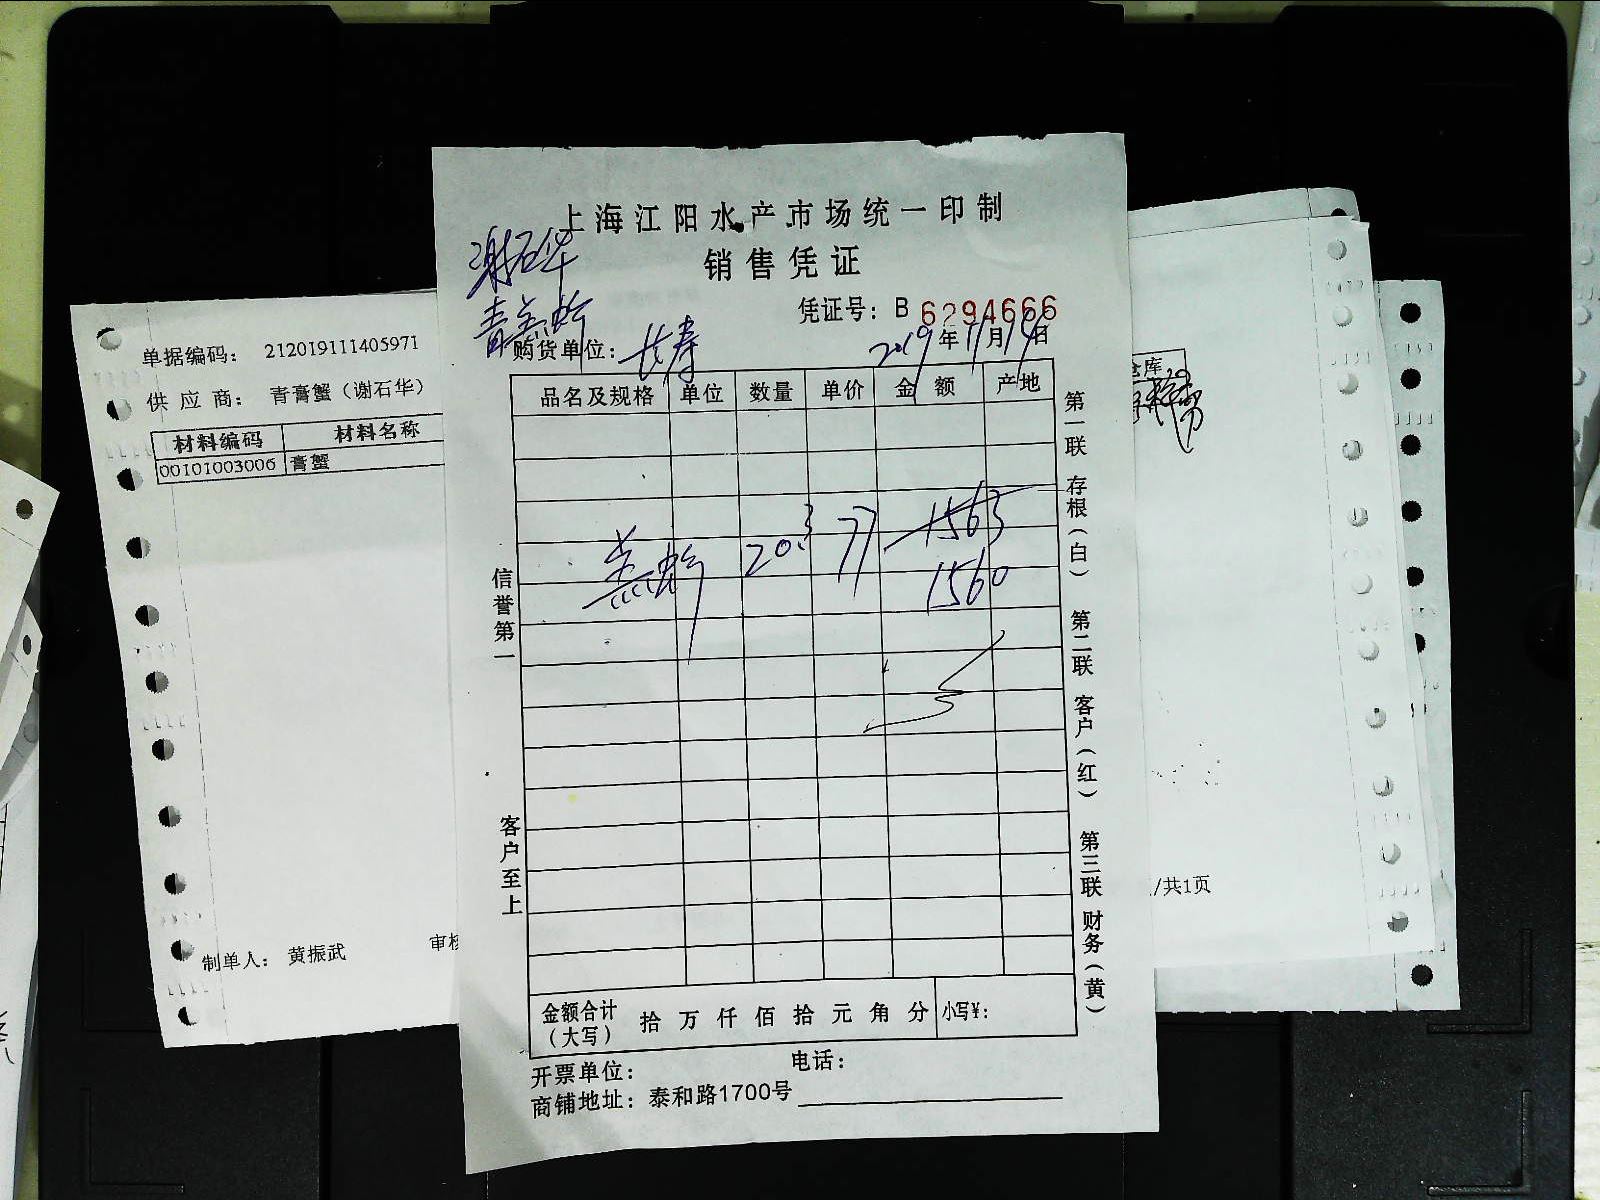 上海江阳水产市场统一印制
销售凭证
谢石华
凭证号：B 6294666
购货单位：长寿
2019年11月14日
品名及规格 单位 数量 单价 金额 产地
20.3 77 1563
1560
信誉第一
客户至上
第一联 存根（白） 第二联 客户（红） 第三联 财务（黄）
金额合计（大写） 拾万仟佰拾元角分 小写¥：
开票单位： 电话：
商铺地址：泰和路1700号
单据编码： 212019111405971
供应商： 青膏蟹（谢石华）
材料编码 材料名称
00101003006 膏蟹
制单人： 黄振武 审核
仓库
/共1页